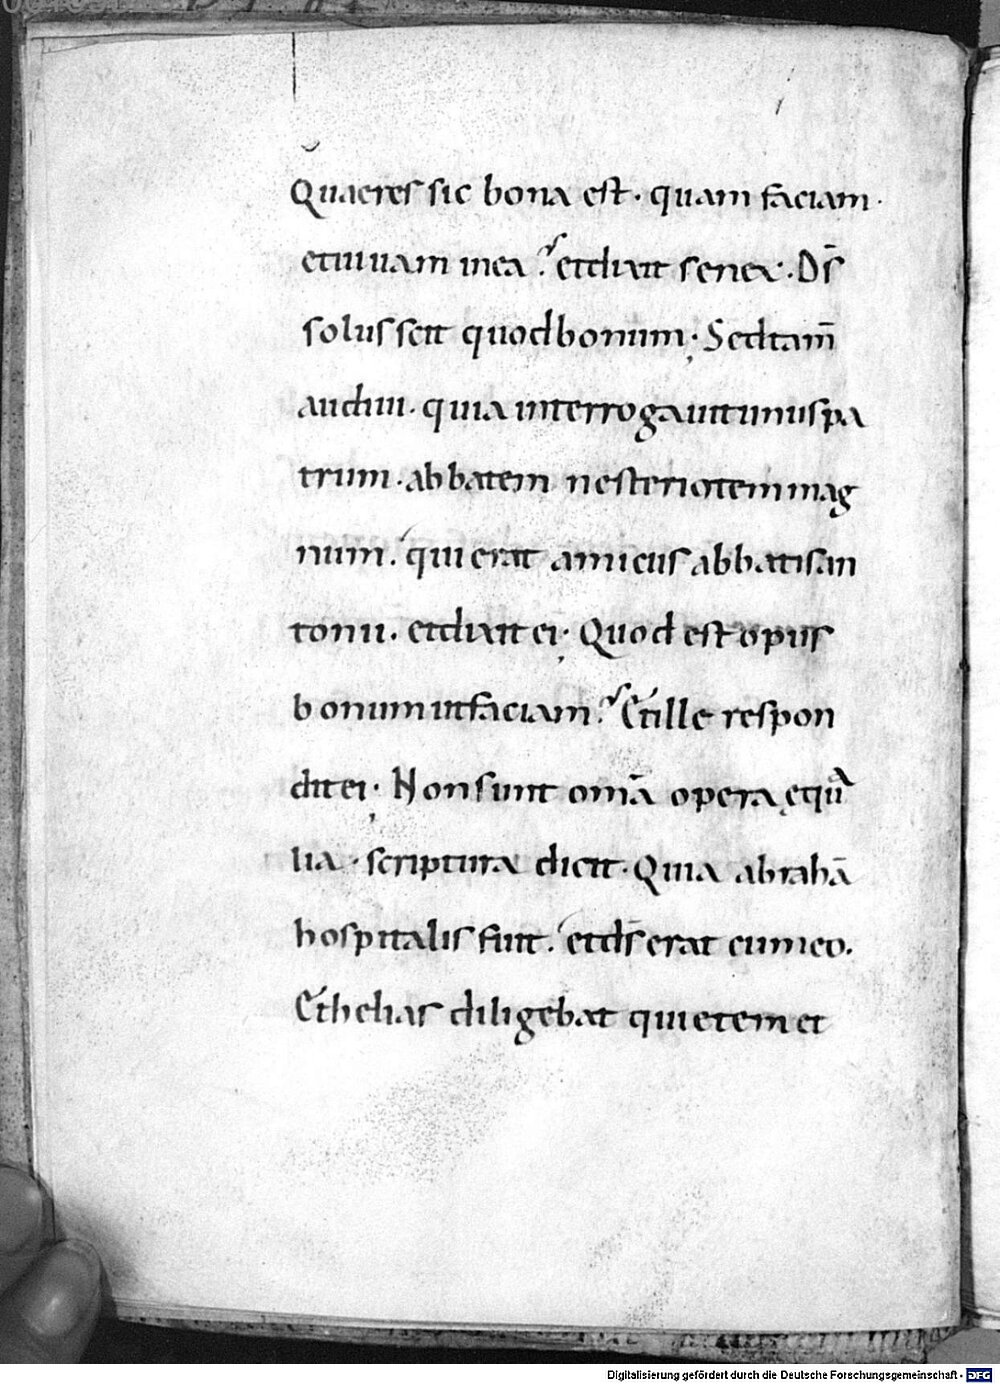 Quaeres sic bona est · quam faciam ·
et uiuam in ea ? et dixit senex · D̄s
solus scit quod bonum · Sed tam̄
audiui · quia interrogauit unus pa
trum · abbatem nesteriotem mag
num · qui erat amicus abbatis an
tonii · et dixit ei · Quod est opus
bonum ut faciam ? Et ille respon
dit ei · Non sunt om̄a opera ęqua
lia · scriptura dicit · Quia abrahā
hospitalis fuit · et d̄s erat cum eo ·
Et helias diligebat quietem et
Digitalisierung gefördert durch die Deutsche Forschungsgemeinschaft - DFG